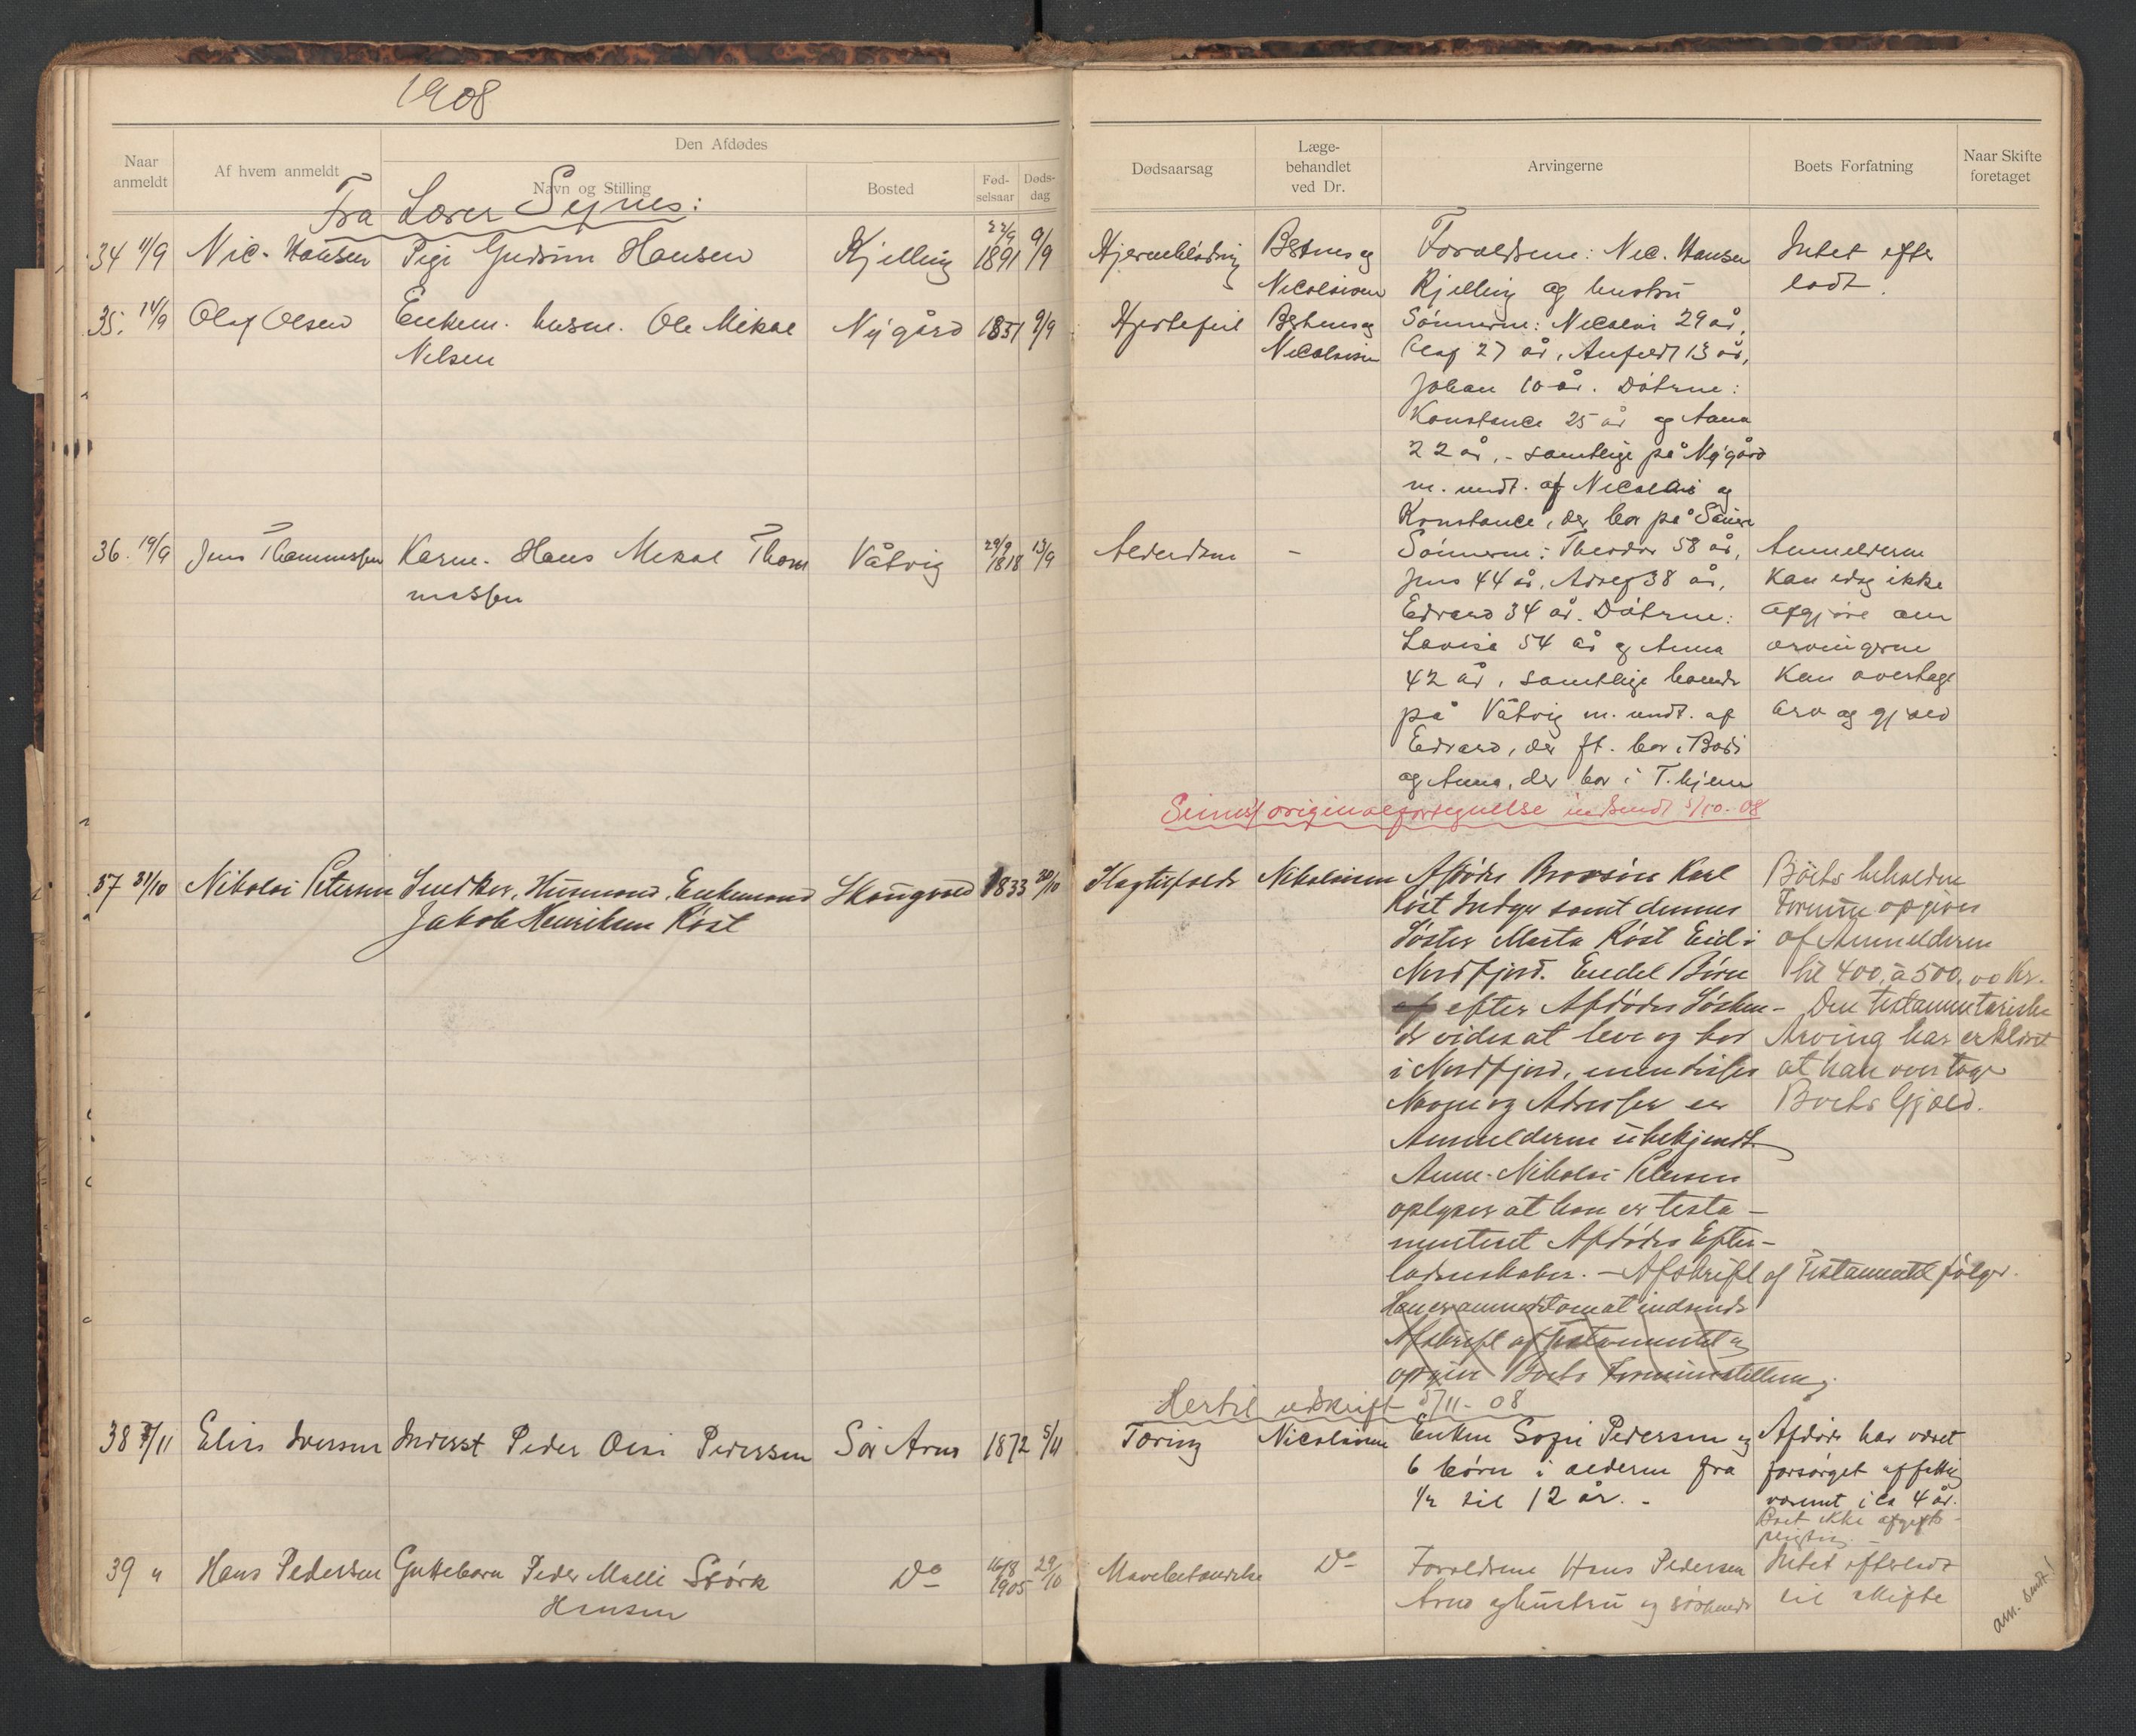 1908
Naar anmeldt
Af hvem anmeldt
Den Afdødes
Navn og Stilling
Bosted
Fød-
selsaar
Døds-
dag
Dødsaarsag
Læge-
behandlet
ved Dr.
Arvingerne
Boets Forfatning
Naar Skifte
foretaget
Fra Lærer Seines:
34 11/9 Nic. Hansen Pige Gudrun Hansen Kjelling 22/9 1891 9/9 Hjerneblødning
Nicolaisen
Forældrene: Nic. Hansen
Kjelling og hustru
Intet efter
ladt.
35. 14/9 Olaf Olsen Enkem. husm. Ole Mikal
Nilsen
Nygård 1851 9/9 Hjertefeil
Nicolaisen
Sønnerne: Nicolai 29 år,
Olaf 27 år, Anfeldt 13 år,
Johan 10 år. Døtrene:
Konstance 25 år og Anna
22 år, - samtlige på Nygård
m. undt. af Nicolai og
Konstance, der bor på
36. 19/9 Jens Thommessen Karm. Hans Mikal Thom
messen
Våtvig 29/9 1818 13/9 Alderdom -
Sønnerne: Theodor 58 år,
Jens 44 år, Adolf 38 år,
Edvard 34 år. Døtrene:
Lovisa 54 år og Anna
42 år, samtlige boende
på Våtvig m. undt. af
Edvard, der ft. bor i Bodø
og Anna, der bor i T.hjem
Anmelderen
kan idag ikke
afgjøre om
arvingerne
kan overtage
arv og gjæld
Seines originalfortegnelse indsendt 5/10-08
37 31/10 Nikolai Petersen Snedker, Husmand, Enkemand
Jakob Henriksen Røst
Skaugvold 1833 20/10 Slagtilfælde Nikolaisen
Afdødes Brorsøn Karl
Røst Indyr samt dennes
Søster Marta Røst Eid i
Nordfjord. Endel Børn
af efter Afdødes Søsken-
de vides at leve og bor
i Nordfjord, men disses
Navne og Adresser er
Anmelderen ubekjendt.
Anm. Nikolai Petersen
oplyser at han er testa-
menteret Afdødes Efter-
ladenskaber. - Afskrift af Testamentet følger.
Han er anmodet om at indsende
Afskrift af Testamentet og
opgive Boets Formuesstilling.
Boets beholdne
Formue opgives
af Anmelderen
til 400, à 500,00 Kr.
- Den testamentariske
Arving har erklæret
at han overtager
Boets Gjæld.
Hertil udskrift 5/11-08
38 5/11 Elias Iversen Inderst Peder Odin Pedersen Sør Arnø 1872 5/11 Tæring Nicolaisen
Enken Sofie Pedersen og
6 børn i alderen fra
1/2 til 12 år. -
Afdøde har været
forsørget af fattig
væsenet i ca 4 år.
Boet ikke afgifts-
pligtig.
39 " Hans Pedersen Guttebarn Peder Malli Størk
Hansen
Do 16/8 1905 29/10 Mavebetændelse Do
Forældrene Hans Pedersen
Arnø og hustru og søskende
Intet efterladt
til skifte
am. sendt!